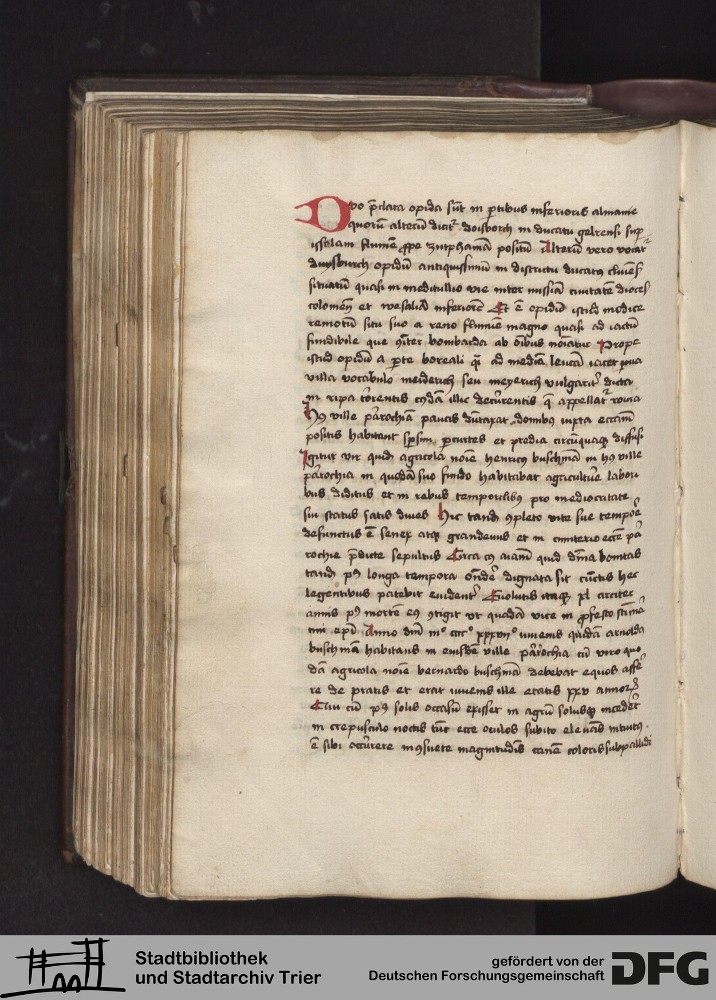 Duo p̄clara opida sūt in ꝑtibus inferioris almanie
quorū alterū dicit᷑ doisborch in ducatu gelrensi sup
isselam flumē ꝓpe zutphaniā positū Alterū vero vocat᷑
duysburch opidū antiquissimū in districtu ducatꝯ cliuēs̄
situatū quasi in meditullio vie inter nussiā ciuitatē dioces̄
coloniēn et wesaliā inferiorē Et ē opidū istud modice
remotū situ suo a reno flumīe magno quasi ad iactū
fundibile que ꝯiter bombarda ab oībus noīatur Prope
istud opidū a ꝑte boreali qͣ̄ ad mediā leucā iacet ꝑua
villa vocabulo meiderich seu meyerich vulgarit᷑ dicta
in ripa torentis cuiꝯdā illic decurentis q̄ appellat᷑ roura
Huiꝯ ville parochiā paucis dūtaxat domibꝯ iuxta ecclām
positis habitant sparsim ꝑ curtes et predia circūquaqꝫ diffusi
Igitur vir quidā agricola noīe henricꝯ buschmā in huiꝯ ville
parochia in quodā suo fundo habitabat agriculture labori
bus deditus et in rebus temporalibꝯ pro mediocritate
sui status satis diues Hic tandē ꝯpleto vite sue tempoē
defunctus ē senex atqꝫ grandeuus et in cimiterio ecc̄e pa
rochie p̄dicte sepultus Circa cuiꝯ aīam quid dīna bonitas
tandē pꝰ longa tempora ondē̄ dignata sit cūctis hec
legentibus patebit euident᷑ Euolutis itaqꝫ xl circiter
annis pꝰ mortē eiꝯ ꝯtigit vt quadā vice in ꝓfesto sc̄i mar
tini epī Anno dn̄i mͦ ccccͦ xxxviiͦ iuuenis quidā arnoldꝯ
buschmā habitans in eiusdē ville parochia cū viro quo
dā agricola noīe bernardo buschmā debebat equos affer
re de pratis et erat iuuenis ille etatis xxv annoꝝ
Qui cū pꝰ solis occasū exisset in agrū solusqꝫ incedēt
in crepusculo noctis tūc ecce oculos subito eleuās intuitꝯ
ē sibi occurere inꝯsuete magnitudīs canē coloris subpallidi
Stadtbibliothek
und Stadtarchiv Trier
gefördert von der
Deutschen Forschungsgemeinschaft
DFG